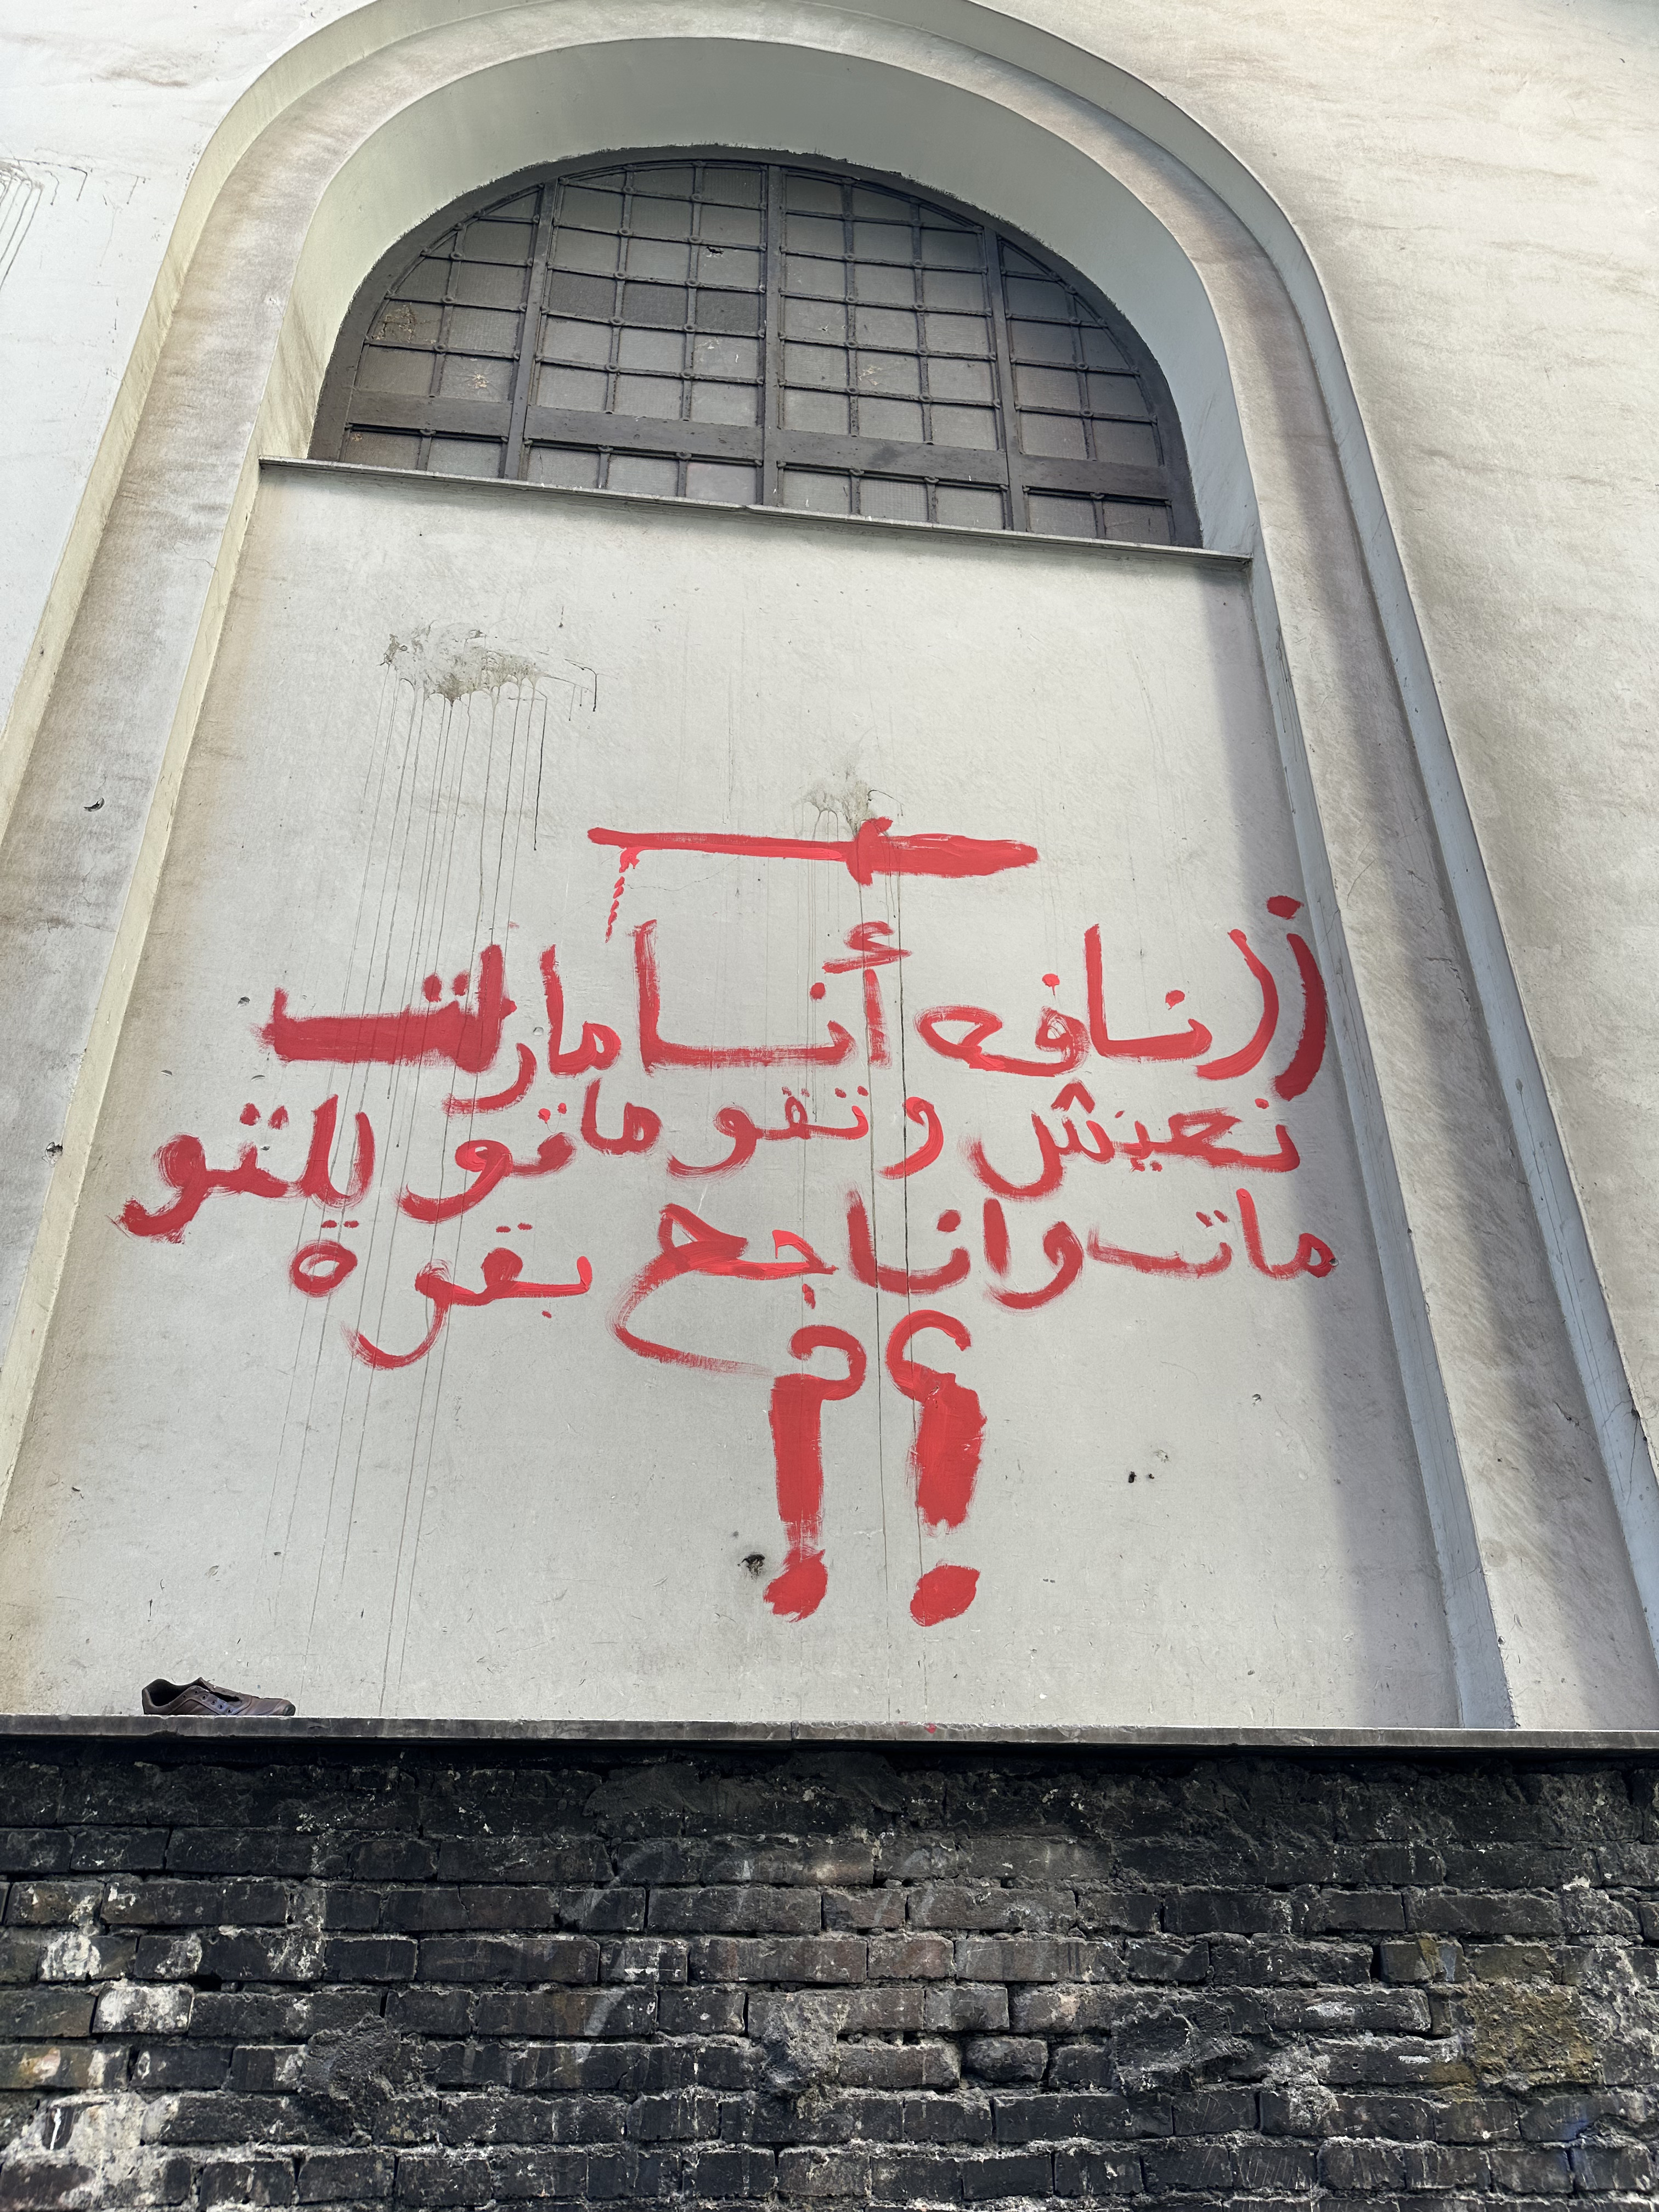 زرنافع أنا مازلت
نعيش وتقو ماتو للتو
ماتو اناجح بقوة
؟؟